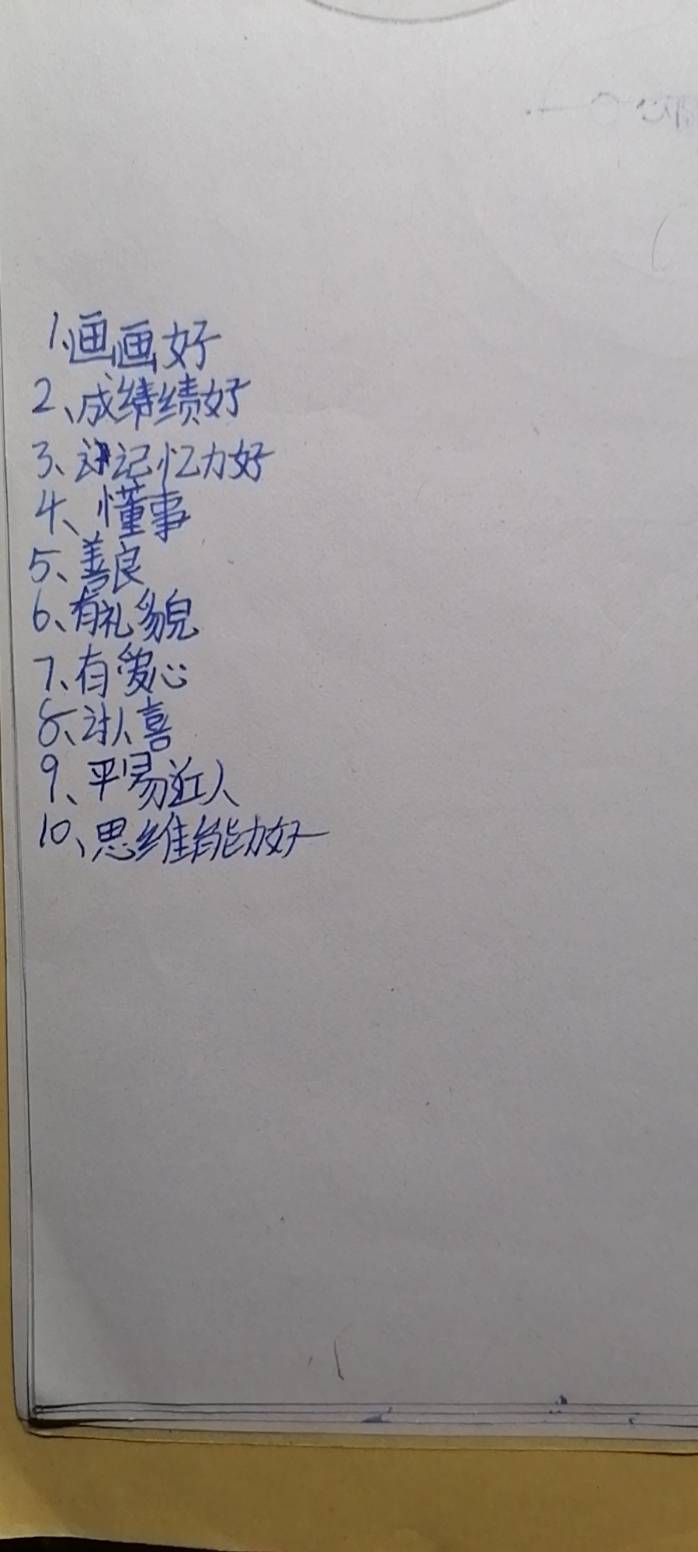 1、画画好
2、成绩好
3、记忆力好
4、懂事
5、善良
6、有礼貌
7、有爱心
8、讨人喜
9、平易近人
10、思维能力好